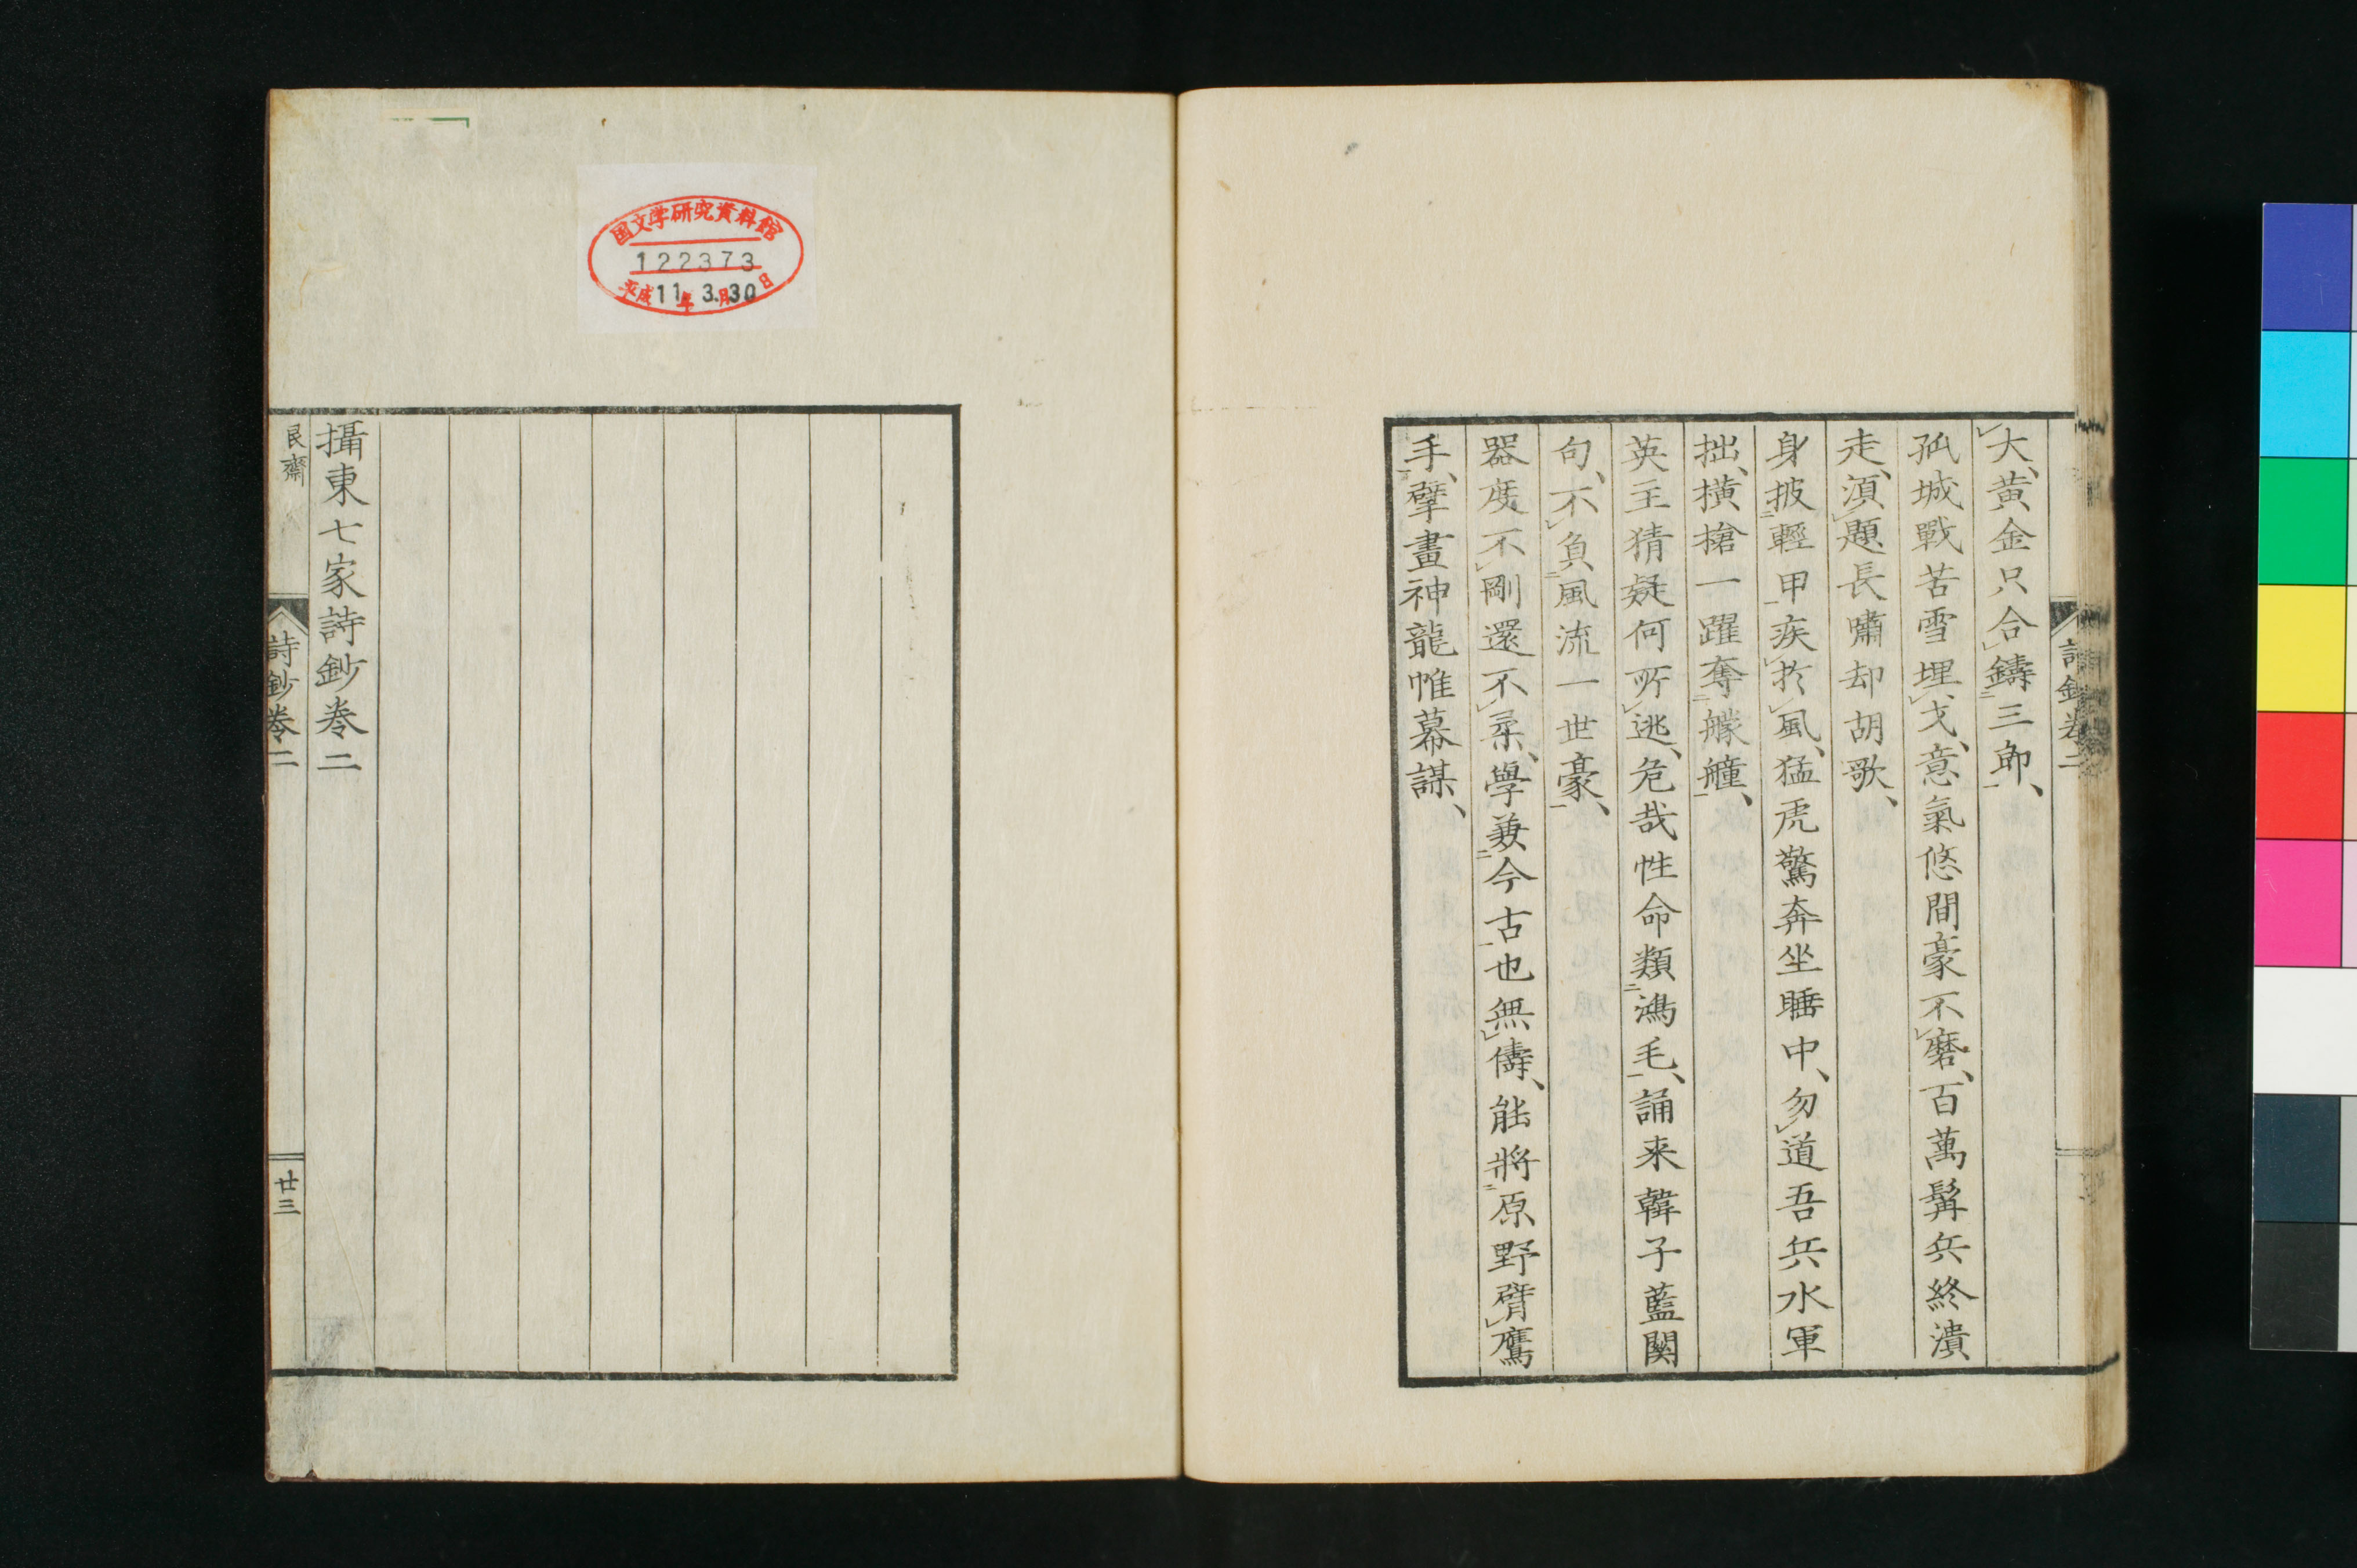 大、黄金只合鑄三郎、
孤城戰苦雪埋戈、意氣悠間豪不磨、百萬髯兵終潰
走、須題長嘯却胡歌、
身披輕甲疾於風、猛虎驚奔坐睡中、勿道吾兵水軍
拙、横搶一躍奪艨艟、
英主猜疑何所逃、危哉性命類鴻毛、誦来韓子藍関
句、不負風流一世豪、
器度不剛還不柔、學兼今古也無儔、能將原野臂鷹
手、擘畫神龍帷幕謀、
攝東七家詩鈔巻二
民齋
詩鈔巻二
廿三
国文学研究資料館
122373
平成11年3月30日